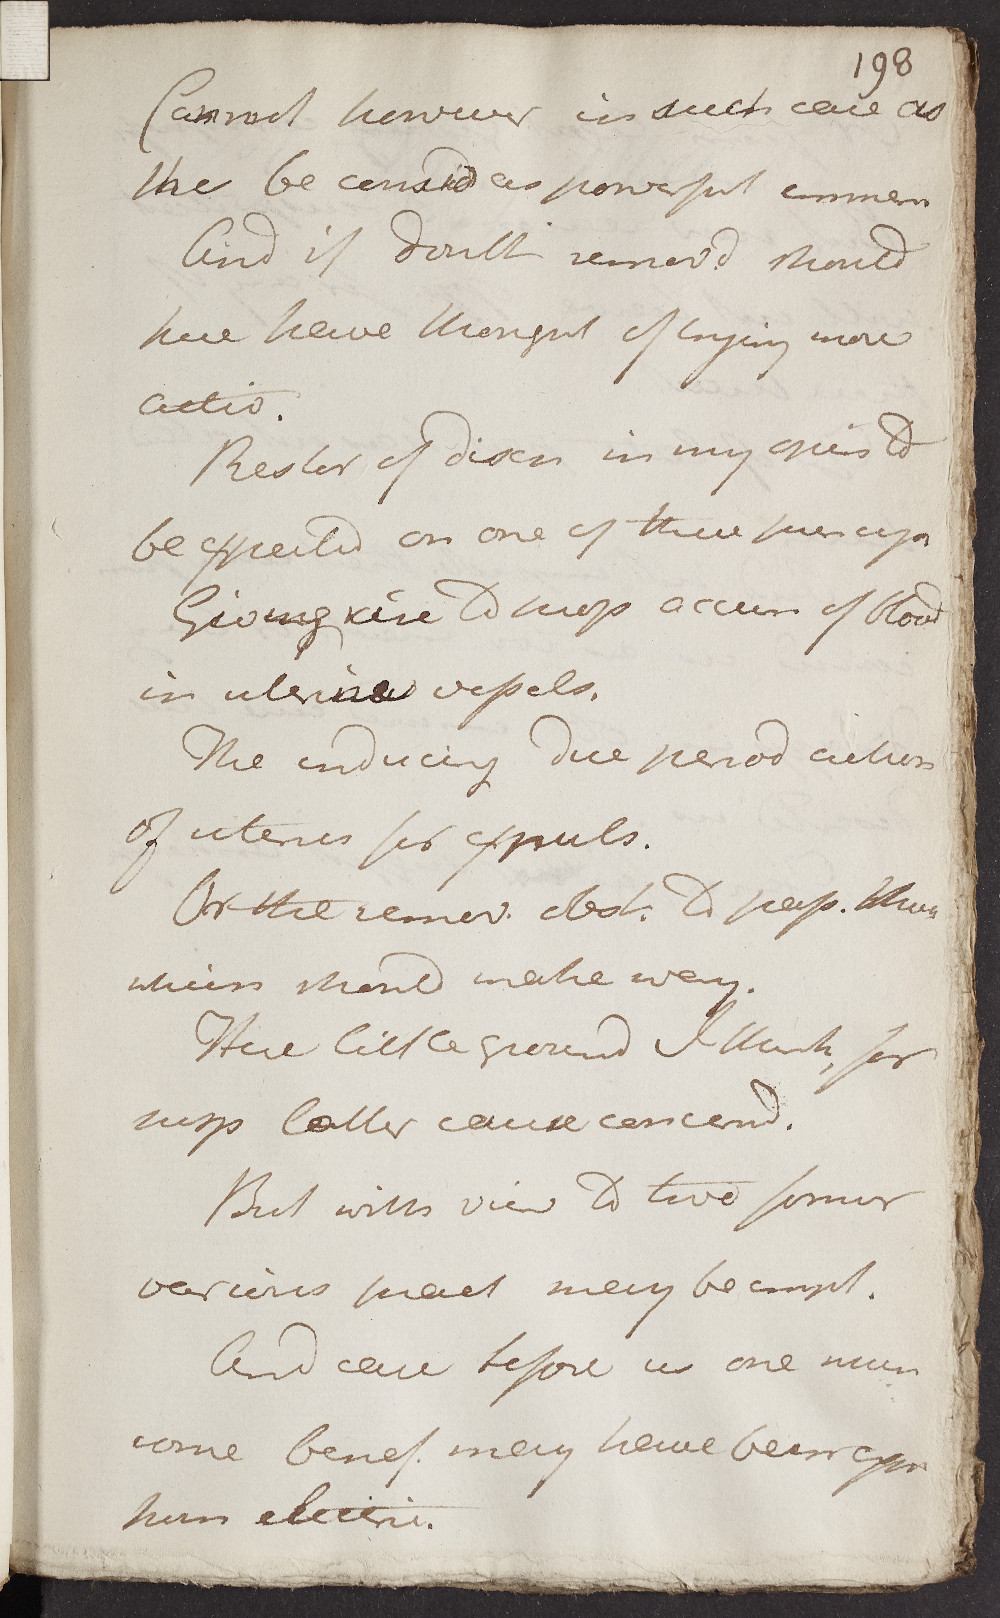 198
Cannot however in such case as
the be considd as powerful emmen
And if doubt remov'd should
here have thought of trying more
activ.
Restor of discn in my opin to
be effected on one of three princip
Giving rise to supp accum of blood
in uterine vessels.
The inducing due period action
of uterus for expuls.
Or the remov. obst. to pass. thro
which should make way.
Here little ground I think, for
supp latter cause concernd.
But with view to two former
various pract may be empl.
And case before us one in
some benef. may have been exp
from electric.